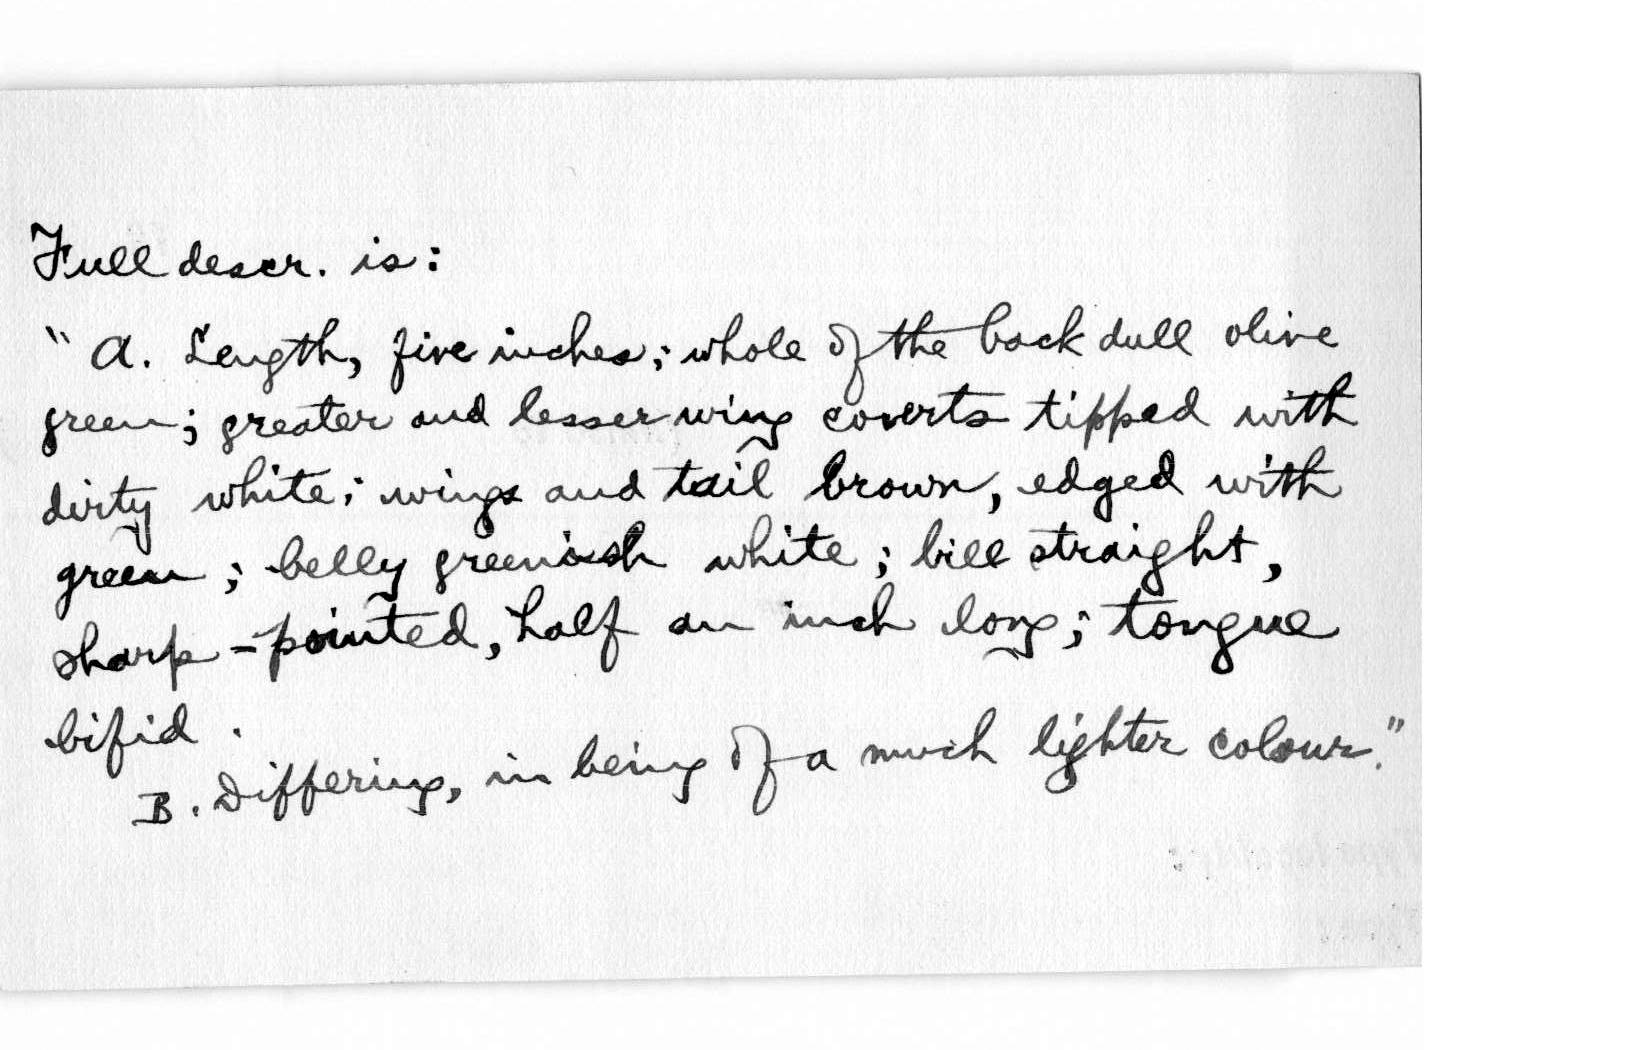 Full descr. is:
"A. Length, five inches; whole of the back dull olive
green; greater and lesser wing coverts tipped with
dirty white; wings and tail brown, edged with
green; belly greenish white; bill straight,
sharp-pointed, half an inch long; tongue
bifid.
B. Differing, in being of a much lighter colour."